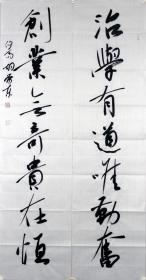 治學有道唯勤奮
創業無奇貴在恒